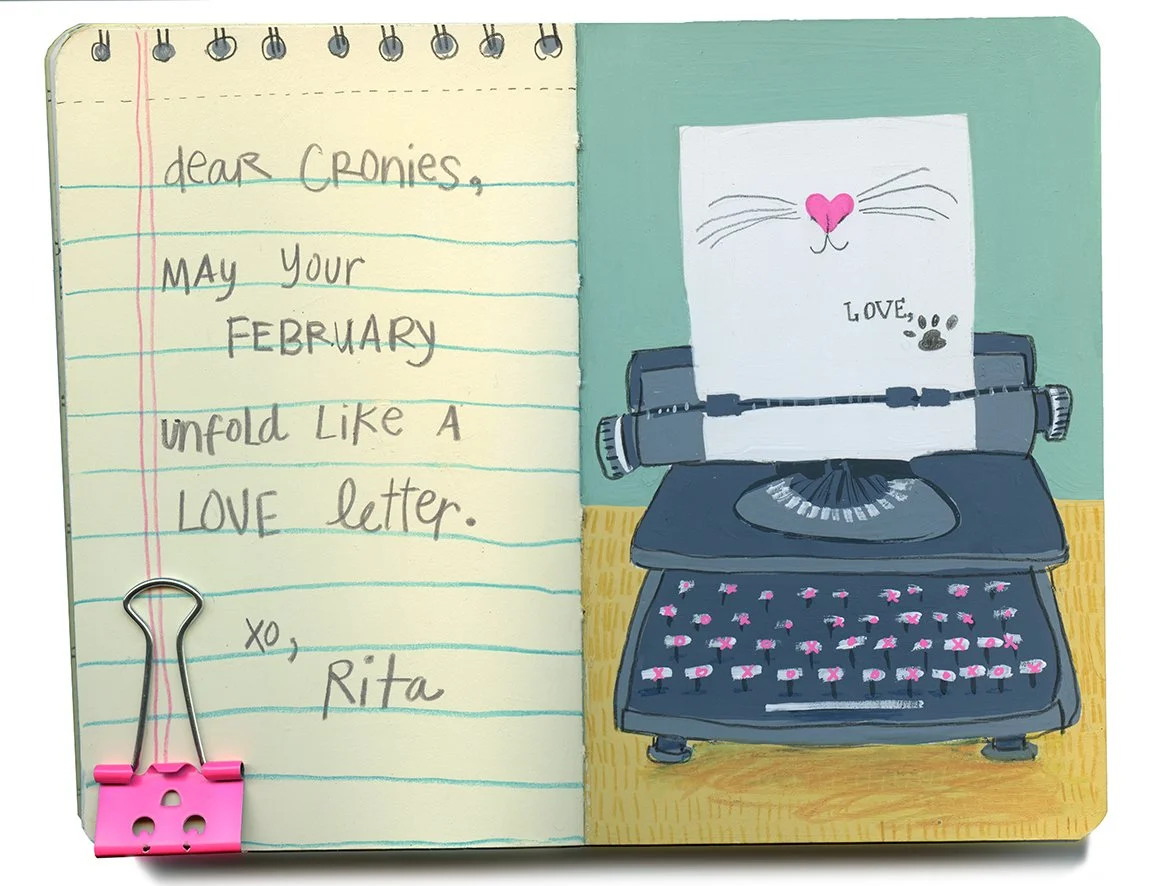 dear CRONies,
MAy your
FEBRUARY
unfold Like A
LOVE letter.
xo,
Rita
LOVE,